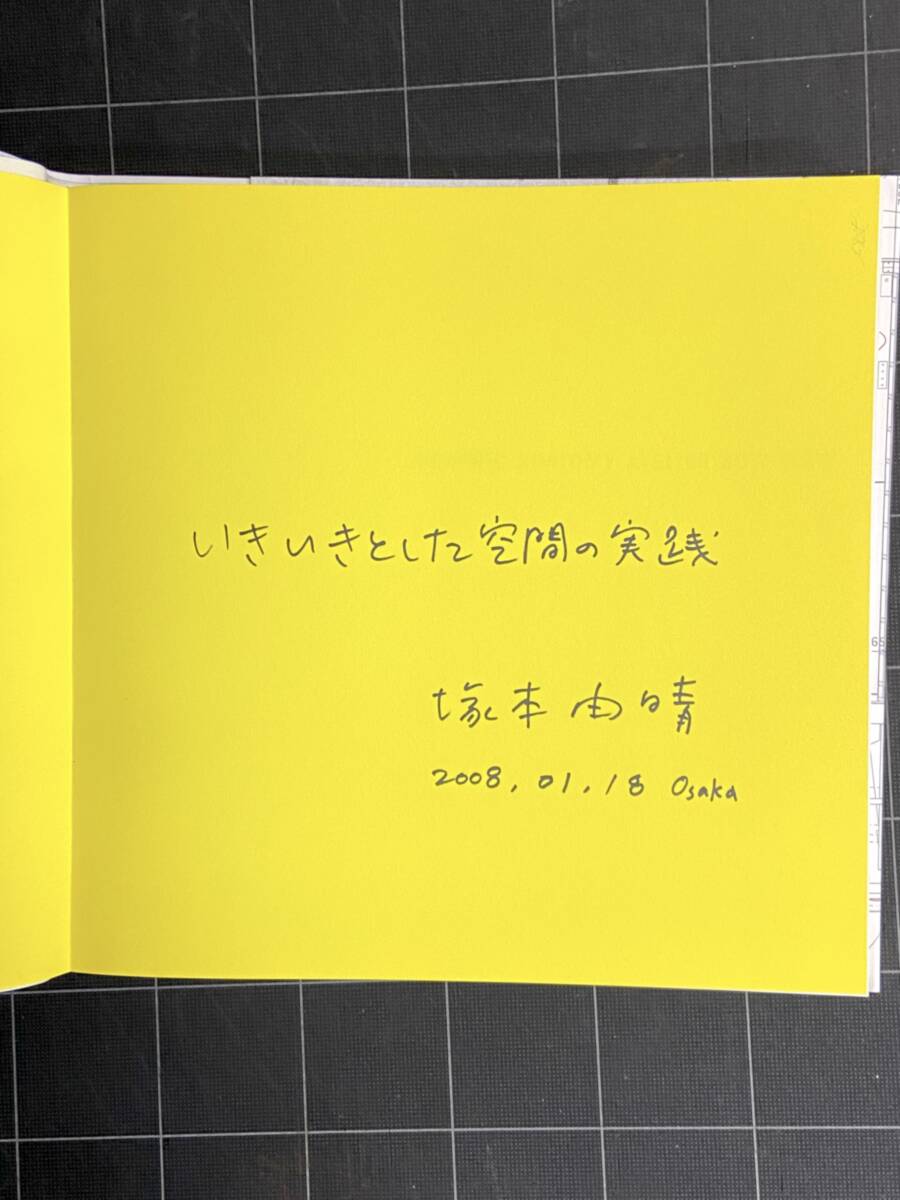 いきいきとした空間の実践
塚本由晴
2008.01.18 Osaka
65